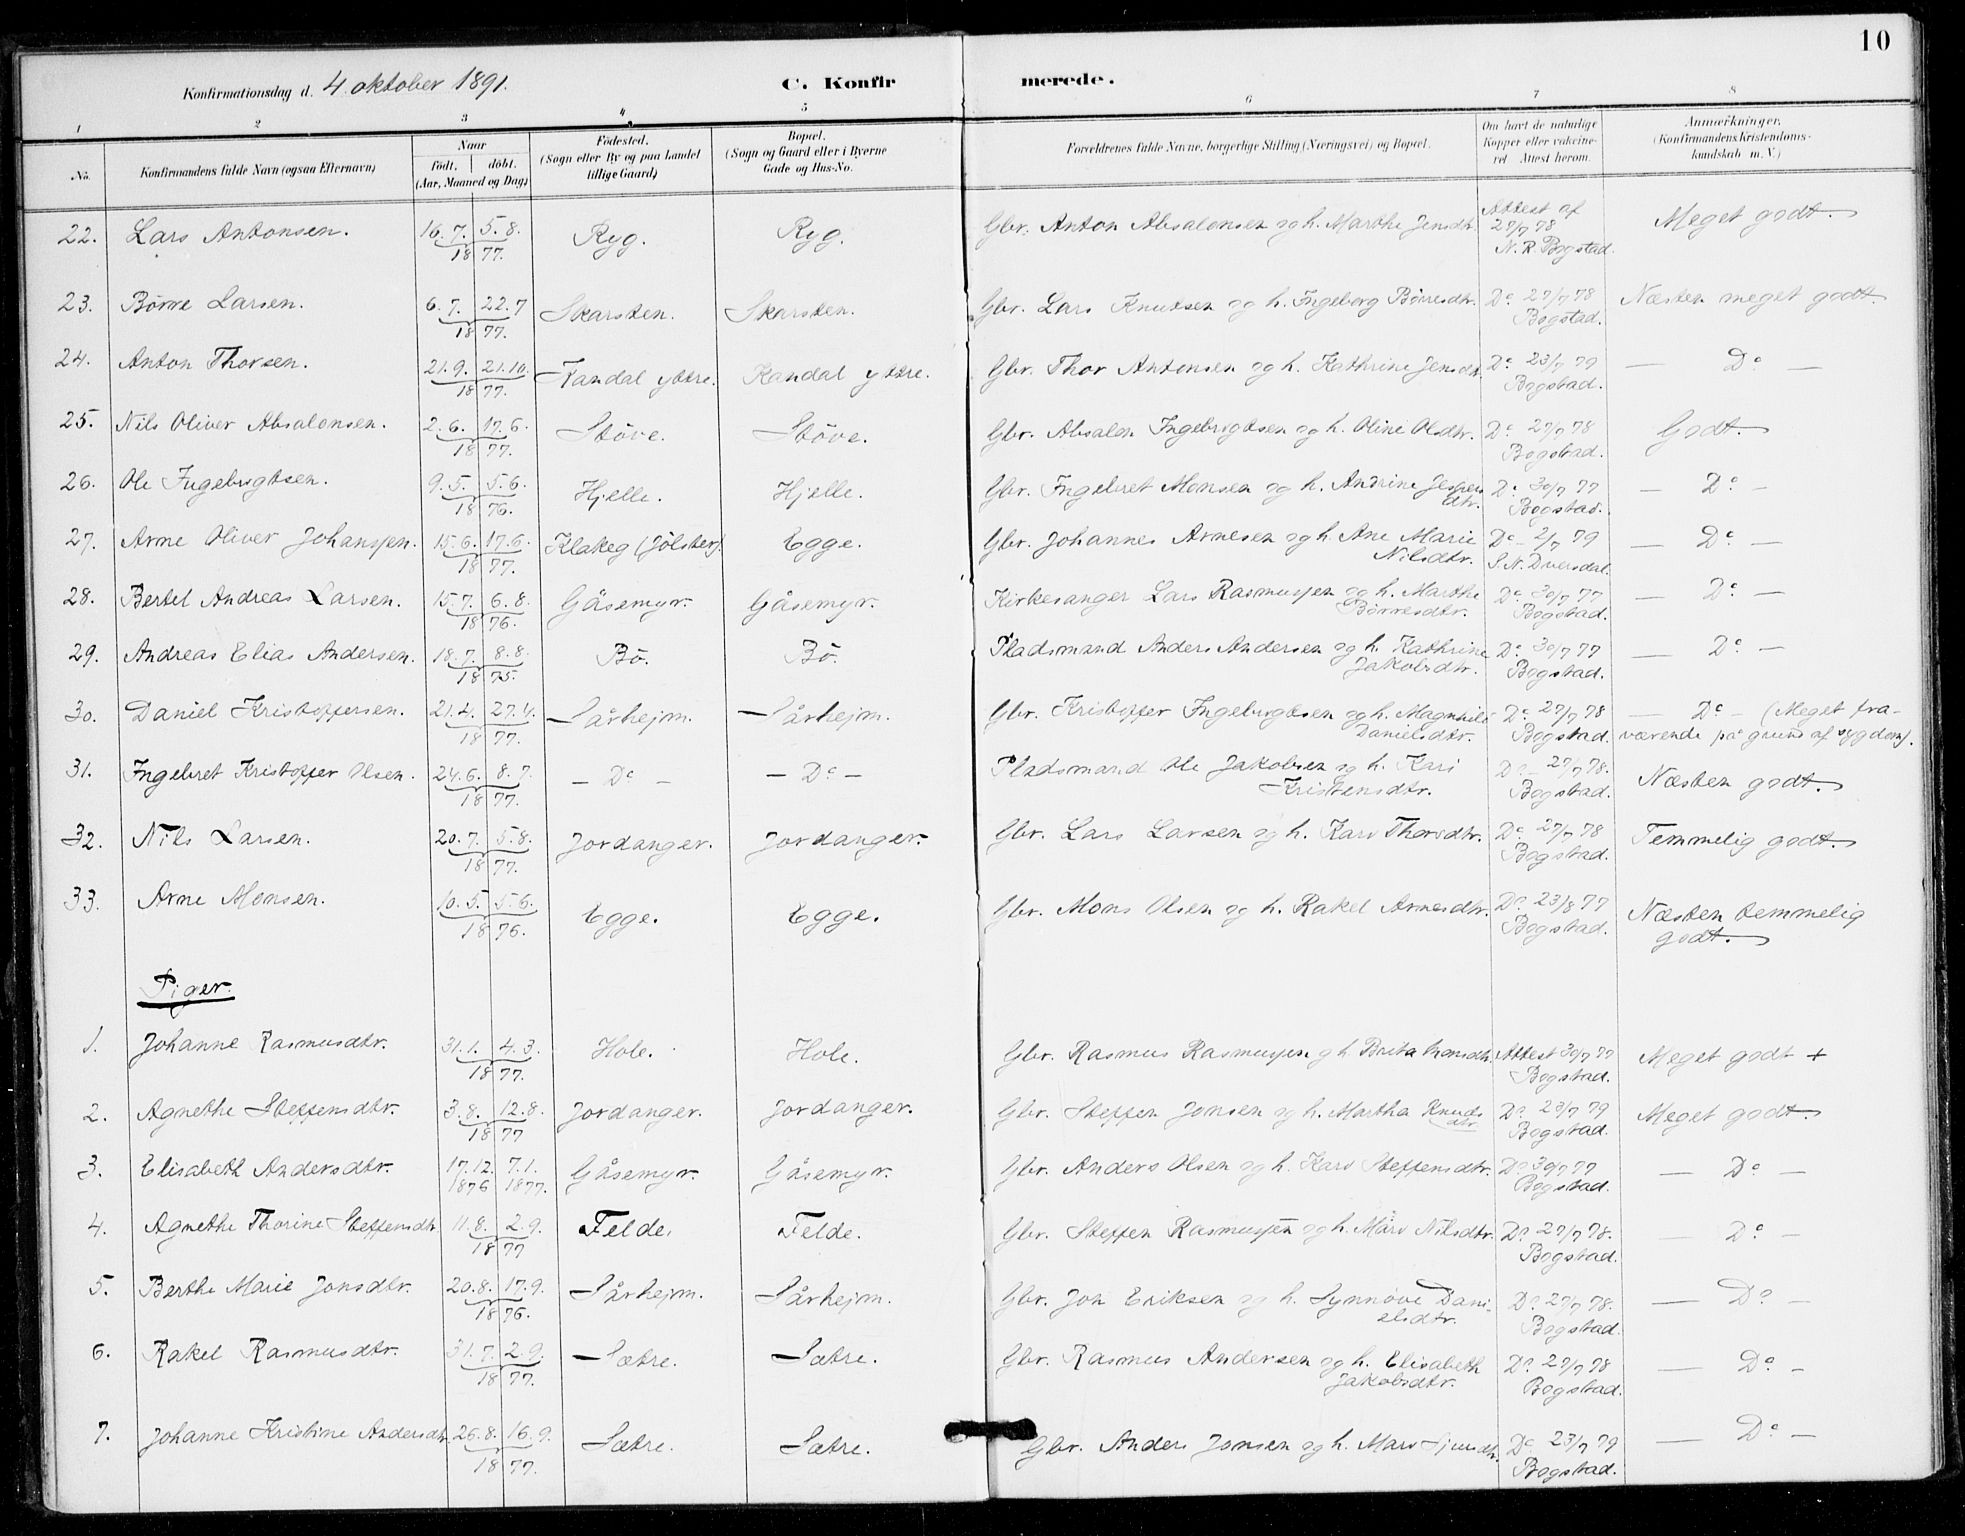 10
Konfirmationsdag d. 4 oktober 1891.
C. Konfirmerede.
1 2 3 4 5 6 7 8
No.
Konfirmandens fulde Navn (ogsaa Efternavn)
Naar
født, | døbt.
(Aar, Maaned og Dag)
Fødested.
(Sogn eller By og paa Landet
tillige Gaard)
Bopæl.
(Sogn og Gaard eller i Byerne
Gade og Hus-No.
Forældrenes fulde Navne, borgerlige Stilling (Næringsvei) og Bopæl.
Om havt de naturlige
Kopper eller vakcine-
ret Attest herom.
Anmærkninger.
(Konfirmandens Kristendoms-
kundskab m. V.)
22. Lars Antonsen. 16.7. 5.8. 1877. Ryg. Ryg. Gbr. Anton Absalonsen og h. Marthe Jensdtr. Attest af
27/7 78
N. R. Bogstad. Meget godt.
23. Børre Larsen. 6.7. 22.7 1877. Skarsten. Skarsten. Gbr. Lars Knutsen og h. Ingeborg Børresdtr. Do 27/7 78
Bogstad. Næsten meget godt.
24. Anton Thorsen. 21.9. 21.10. 1877. Randal yttre. Randal yttre. Gbr. Thor Antonsen og h. Kathrine Jensdtr. Do 23/7 79
Bogstad. — Do —
25. Nils Oliver Absalonsen. 2.6. 17.6. 1877. Støve. Støve. Gbr. Absalon Ingebrigtsen og h. Oline Olsdtr. Do 27/7 78
Bogstad. Godt.
26. Ole Ingebrigtsen. 9.5. 5.6. 1876. Hjelle. Hjelle. Gbr. Ingebret Monsen og h. Andrine Jespers
dtr. Do 30/7 77
Bogstad. — Do —
27. Arne Oliver Johanssen. 15.6. 17.6. 1877. Klakeg (Jølster). Egge. Gbr. Johannes Arnesen og h. Ane Marie
Nilsdtr. Do — 2/7 79
S. N. Dversdal. — Do —
28. Bertel Andreas Larsen. 15.7. 6.8. 1876. Gåsemyr. Gåsemyr. Kirkesanger Lars Rasmussen og h. Marthe
Børresdtr. Do 30/7 77
Bogstad. — Do —
29. Andreas Elias Andersen. 18.7. 8.8. 1875. Bø. Bø. Pladsmand Anders Andersen og h. Kathrine
Jakobsdtr. Do 30/7 77
Bogstad. — Do —
30. Daniel Kristoffersen. 21.4. 27.4. 1877. Sårhejm. Sårhejm. Gbr. Kristoffer Ingebrigtsen og h. Magnhild
Danielsdtr. Do 27/7 78
Bogstad. — Do — (Meget fra-
værende på grund af sygdom).
31. Ingebret Kristoffer Olsen. 24.6. 8.7. 1877. — Do — — Do — Pladsmand Ole Jakobsen og h. Kari
Kristensdtr. Do — 27/7 78.
Bogstad. Næsten godt.
32. Nils Larsen. 20.7. 5.8. 1877. Jordanger. Jordanger. Gbr. Lars Larsen og h. Kari Thorsdtr. Do 27/7 78
Bogstad. Temmelig godt.
33. Arne Monsen. 10.5. 5.6. 1876. Egge. Egge. Gbr. Mons Olsen og h. Rakel Arnesdtr. Do 23/8 77
Bogstad. Næsten temmelig
godt.
Piger.
1. Johanne Rasmusdtr. 31.1. 4.3. 1877. Hole. Hole. Gbr. Rasmus Rasmussen og h. Brita Attest 30/7 77
Bogstad. Meget godt +
2. Agnethe Steffensdtr. 3.8. 12.8. 1877 Jordanger. Jordanger. Gbr. Steffen Jonsen og h. Martha Knuds
dtr. Do 23/7 79
Bogstad. Meget godt.
3. Elisabeth Andersdtr. 17.12. 1876 7.1. 1877. Gåsemyr. Gåsemyr. Gbr. Anders Olsen og h. Kari Steffensdtr. Do 30/7 77
Bogstad. — Do —
4. Agnethe Thorine Steffensdtr. 11.8. 2.9. 1877 Felde. Felde. Gbr. Steffen Rasmussen og h. Mari Nilsdtr. Do 27/7 78.
Bogstad. — Do —
5. Berthe Marie Jonsdtr. 20.8. 17.9. 1876. Sårhejm. Sårhejm. Gbr. Jon Eriksen og h. Synnøve Dani-
elsdtr. Do 27/7 78.
Bogstad. — Do —
6. Rakel Rasmusdtr. 31.7. 2.9. 1877. Sætre. Sætre. Gbr. Rasmus Andersen og h. Elisabeth
Jakobsdtr. Do 27/7 78
Bogstad. — Do —
7. Johanne Kristine Andersdtr. 26.8. 16.9. 1877. Sætre. Sætre. Gbr. Anders Jonsen og h. Mari Sjursdtr. Do 23/7 79
Bogstad. — Do —